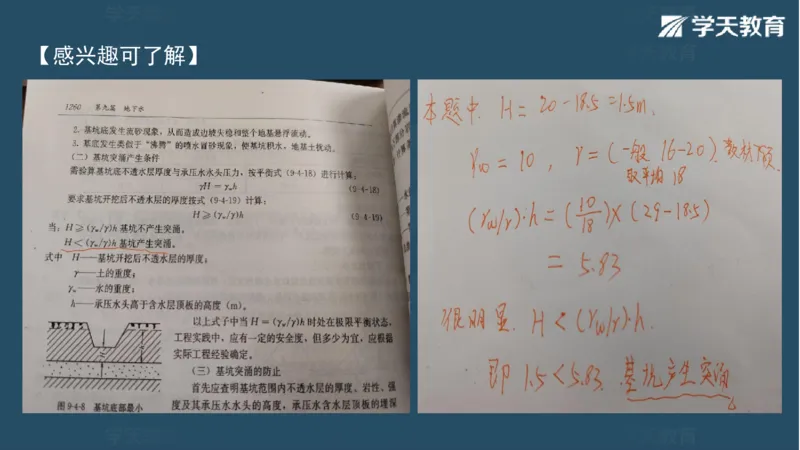 学天教育
【感兴趣可了解】
1260 第九篇 地下水
2. 基坑底发生流砂现象，从而造成边坡失稳和整个地基悬浮流动。
3. 基底发生类似于“沸腾”的喷水冒砂现象，使基坑积水，地基土扰动。
（二）基坑突涌产生条件
需验算基坑底不透水层厚度与承压水水头压力，按平衡式（9-4-18）进行计算：
γH = γwh (9-4-18)
要求基坑开挖后不透水层的厚度按式（9-4-19）计算：
H ≥ (γw/γ)h (9-4-19)
当：H ≥ (γw/γ)h 基坑不产生突涌。
H < (γw/γ)h 基坑产生突涌。
式中 H——基坑开挖后不透水层的厚度；
γ——土的重度；
γw——水的重度；
h——承压水头高于含水层顶板的高度（m）。
以上式子中当 H = (γw/γ)h 时处在极限平衡状态，
工程实践中，应有一定的安全度，但多少为宜，应根据
实际工程经验确定。
（三）基坑突涌的防止
首先应查明基坑范围内不透水层的厚度、岩性、强
度及其承压水水头的高度，承压水含水层顶板的埋深
图 9-4-8 基坑底部最小
本题中 H = 20 - 18.5 = 1.5m.
γw = 10 , γ = (一般 16-20)
取平均 18
(γw/γ)·h = (10/18) × (29-18.5)
= 5.83
很明显. H < (γw/γ)·h.
即 1.5 < 5.83. 基坑产生突涌
学天教育
学天教育